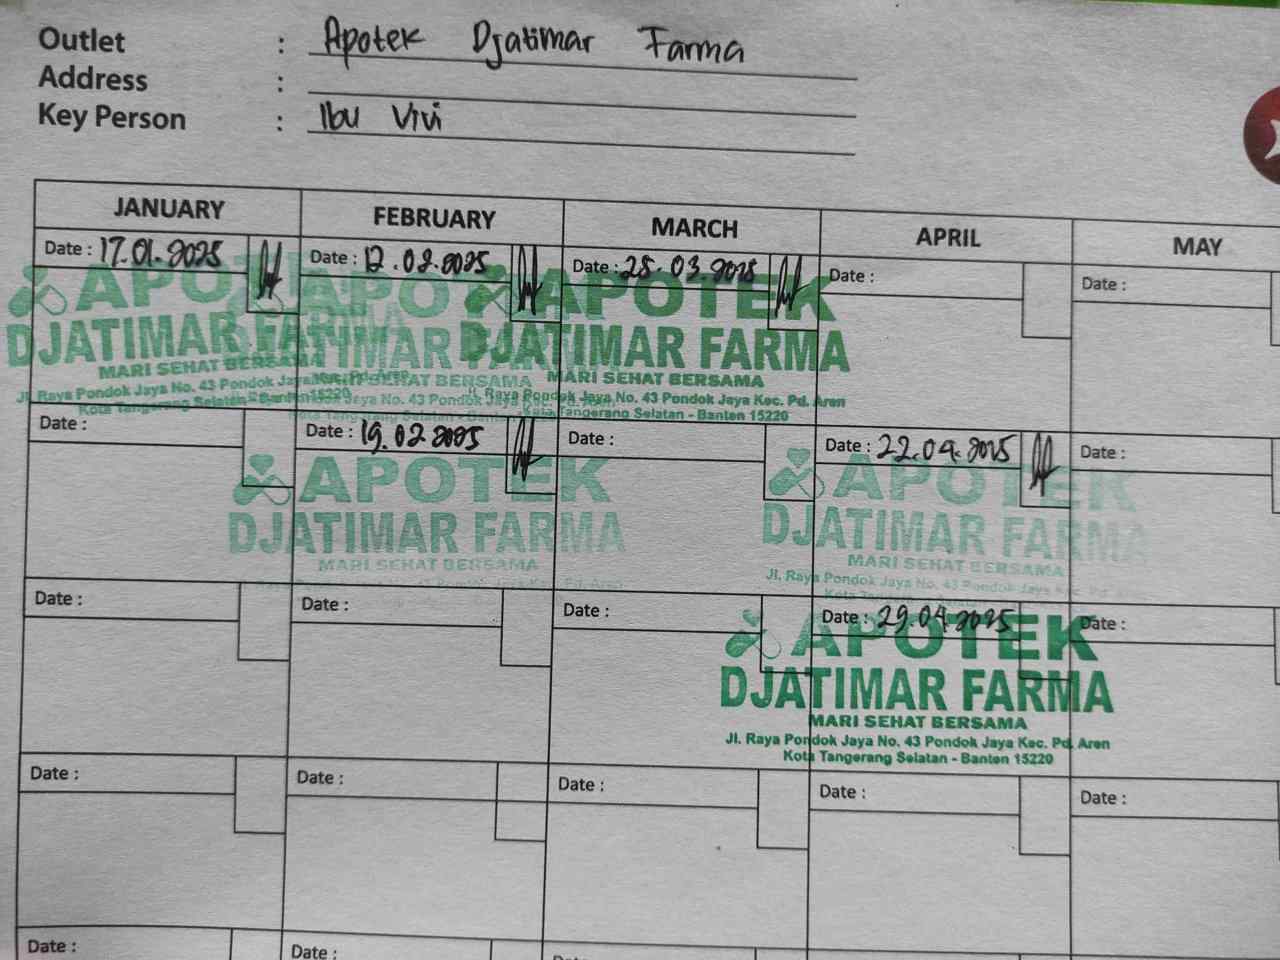 Outlet : Apotek Djatimar Farma
Address :
Key Person : Ibu Vivi
JANUARY FEBRUARY MARCH APRIL MAY
Date : 17.01.2025 Date : 12.02.2025 Date : 25.03.2025 Date : Date :
APOTEK APOTEK APOTEK
DJATIMAR FARMA DJATIMAR FARMA DJATIMAR FARMA
MARI SEHAT BERSAMA SEHAT BERSAMA MARI SEHAT BERSAMA
Jl. Raya Pondok Jaya No. 43 Pondok Jaya Jl. Raya Pondok Jaya No. 43 Pondok Jaya Kec. Pd. Aren
Kota Tangerang Selatan - Banten 15220 Kota Tangerang Selatan - Banten 15220
Date : Date : 19.02.2025 Date : Date : 22.04.2025 Date :
APOTEK APOTEK
DJATIMAR FARMA DJATIMAR FARMA
MARI SEHAT BERSAMA MARI SEHAT BERSAMA
Jl. Raya Pondok Jaya No. 43 Pondok Jaya Kec. Pd. Aren
Date : Date : Date : Date : 29.04.2025 Date :
APOTEK
DJATIMAR FARMA
MARI SEHAT BERSAMA
Jl. Raya Pondok Jaya No. 43 Pondok Jaya Kec. Pd. Aren
Kota Tangerang Selatan - Banten 15220
Date : Date : Date : Date : Date :
Date : Date : Date :